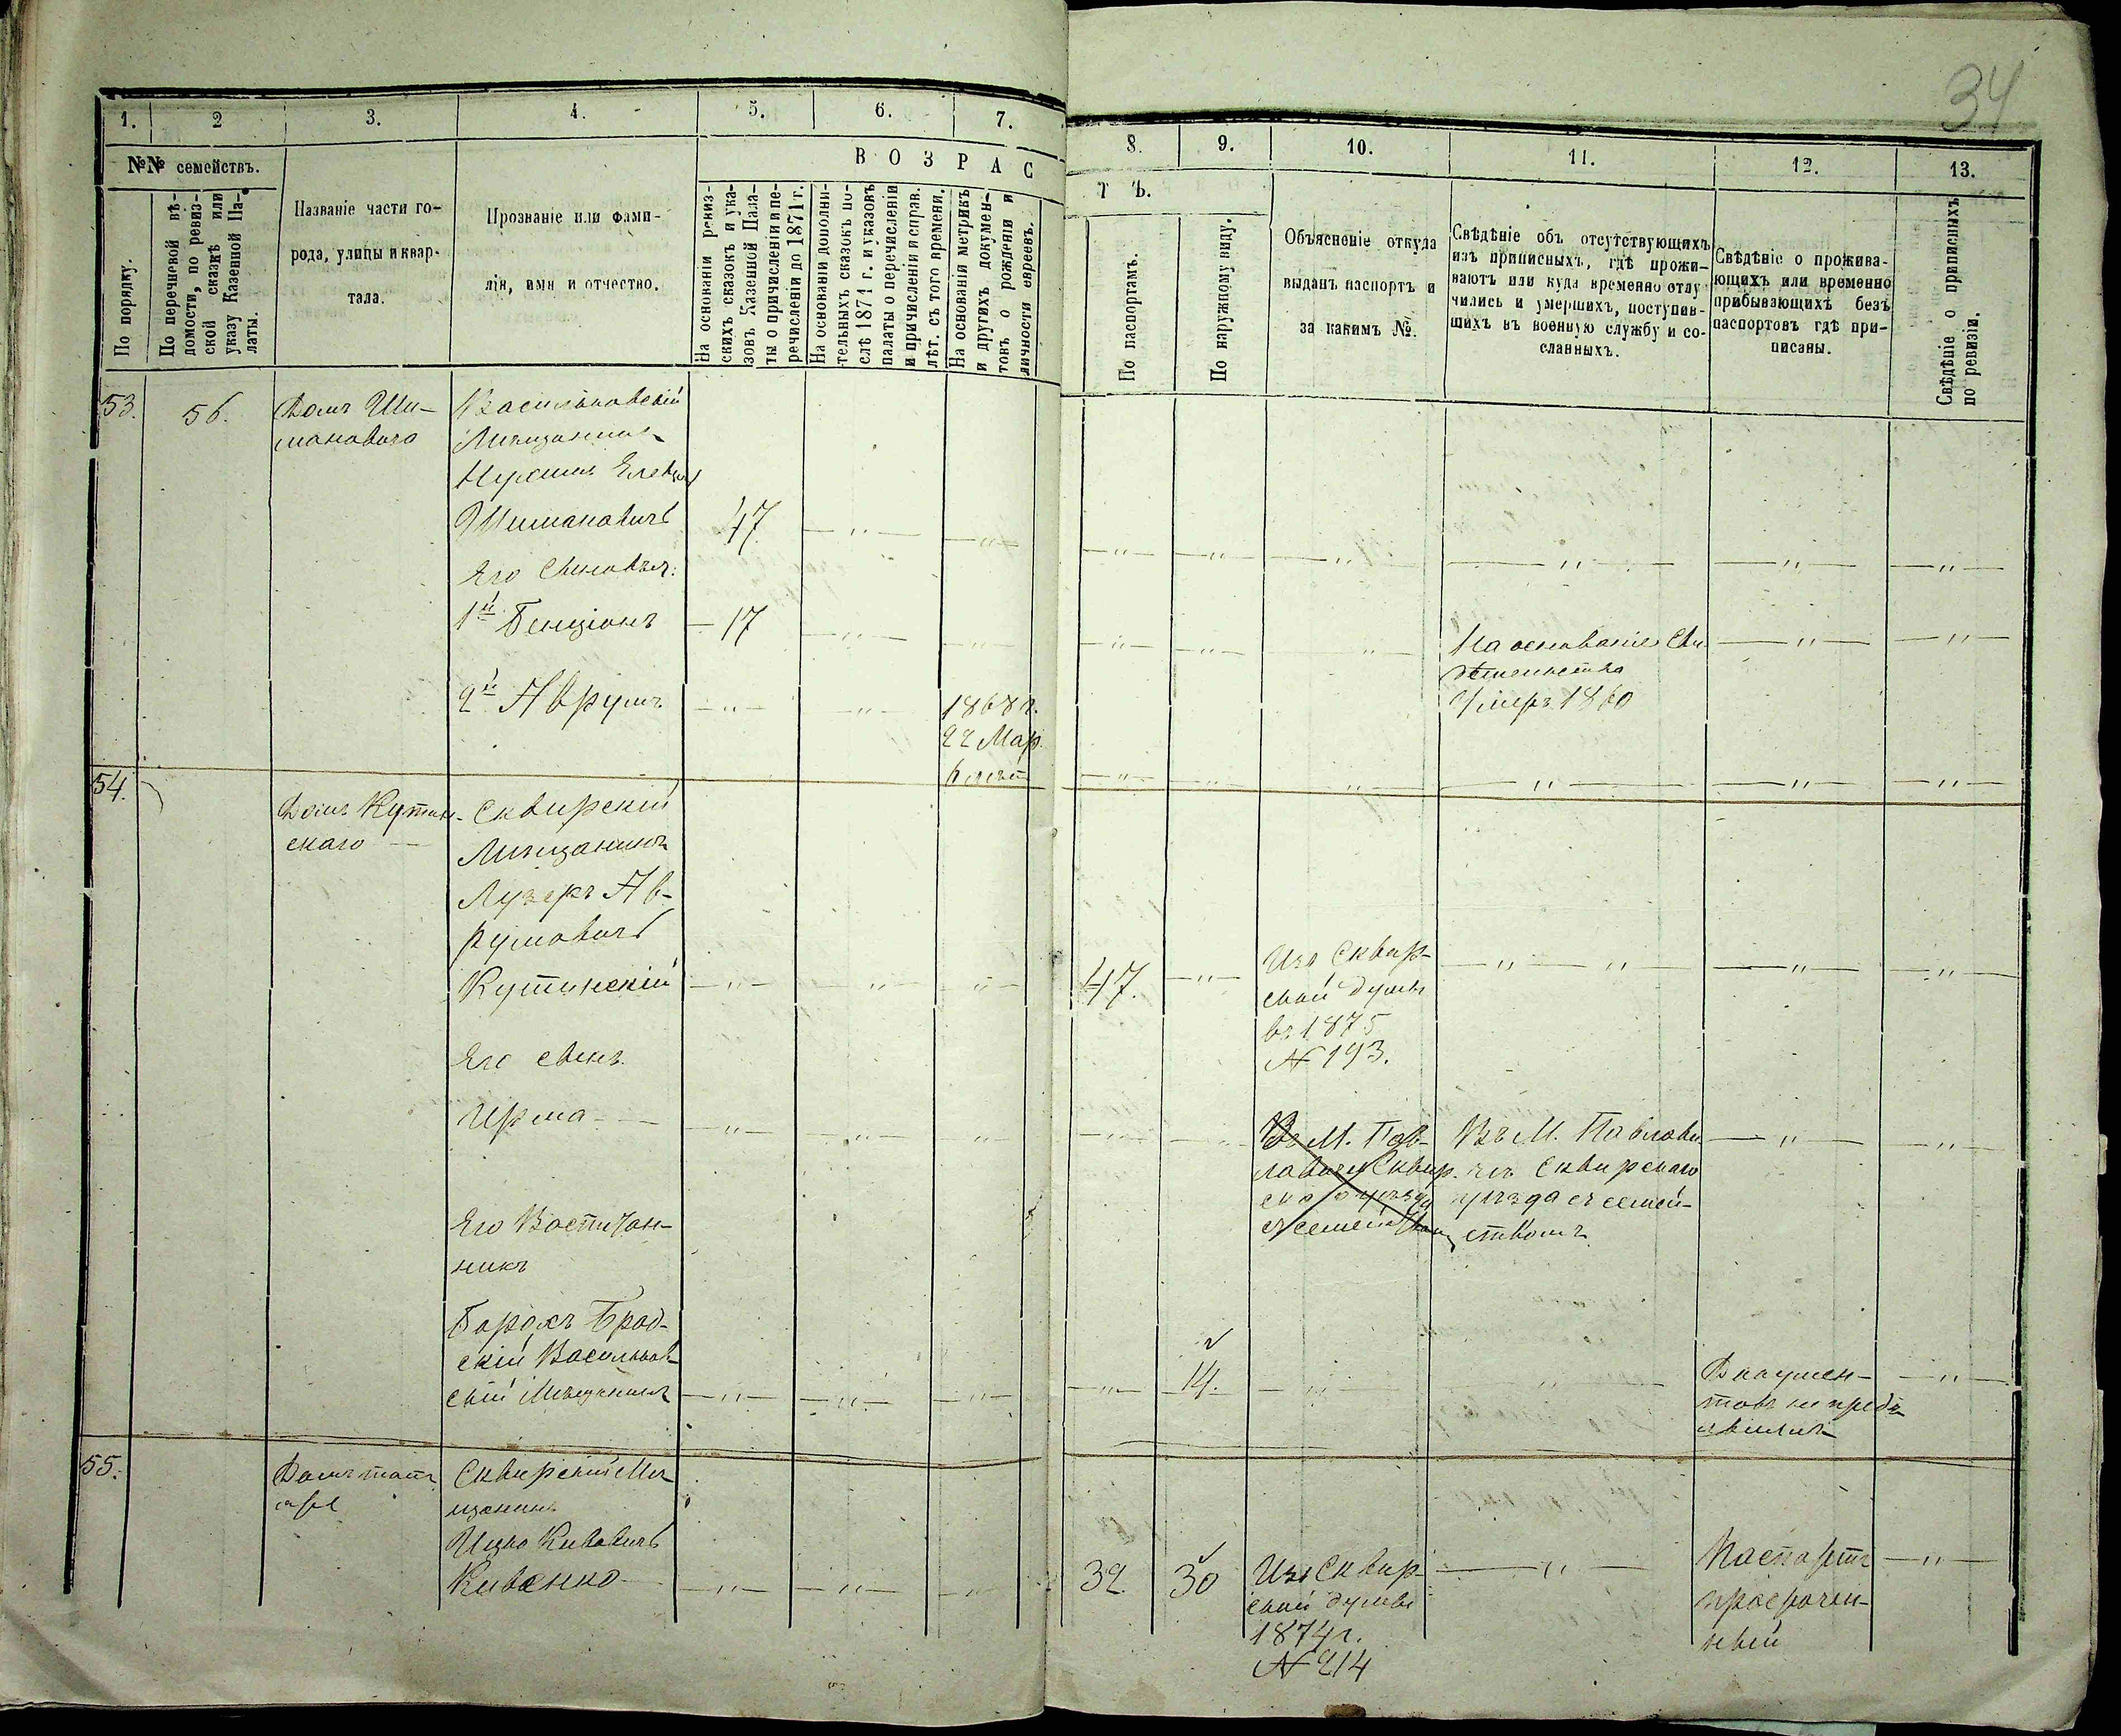 34
1.
2
3.
4.
5.
6.
7.
8.
9.
10.
11.
12.
13.
№№ семействъ.
ВОЗРАС
ТЪ.
По порядку.
По перечневой вѣ-
домости, по ревиз-
ской сказкѣ или
указу Казенной Па-
латы.
Названіе части го-
рода, улицы и квар-
тала.
Прозваніе или фами-
лія, имя и отчество.
На основаніи ревиз-
скихъ сказокъ и ука-
зовъ Казенной Пала-
ты о причисленіи и пе-
речисленіи до 1871 г.
На основаніи дополни-
тельныхъ сказокъ по-
слѣ 1871 г. и указовъ
палаты о перечисленіи
и причисленіи и справ.
лѣт. съ того времени.
На основаніи метрикъ
и другихъ докумен-
товъ о рожденіи и
личности евреевъ.
По паспортамъ.
По наружному виду.
Объясненіе откуда
выданъ паспортъ и
за какимъ №.
Свѣдѣніе объ отсутствующихъ
изъ приписныхъ, гдѣ прожи-
ваютъ или куда временно отлу-
чились и умершихъ, поступив-
шихъ въ военную службу и со-
сланныхъ.
Свѣдѣніе о прожива-
ющихъ или временно
прибывающихъ безъ
паспортовъ гдѣ при-
писаны.
Свѣдѣніе о приписныхъ
по ревизіи.
53.
56.
Домъ Ши-
мановича
Васильковскій
Мѣщанинъ
Шимановичъ
47
Его Сыновья:
1й Бенціонъ
17
На основаніе Сви
дѣтельства
Умеръ 1860
2й Аврумъ
1868 г.
22 Мар.
6 лѣтъ
54.
Домъ Кутин-
скаго
Сквирскій
Мѣщанинъ
Лузеръ Ав-
румовичъ
Кутинскій
47.
Изъ Сквир-
ской думы
въ 1875
№ 193.
Его сынъ
Ирма
Въ М. Пав-
ловичи Сквир-
скаго уѣзда
съ семействомъ
Въ М. Паволо
чь Сквирскаго
уѣзда съ семей-
ствомъ
Его Воспитан-
никъ
Борохъ Брод-
скій Васильков-
скій Мѣщанинъ
14.
Докумен-
товъ не предъ-
явилъ
55.
Домъ
Сквирскій Мѣ
щанинъ
Ицко Кивовичъ
Кивенко
32.
30
Изъ Сквир-
ской думы
1874 г.
№ 214
Паспортъ
просрочен-
ный